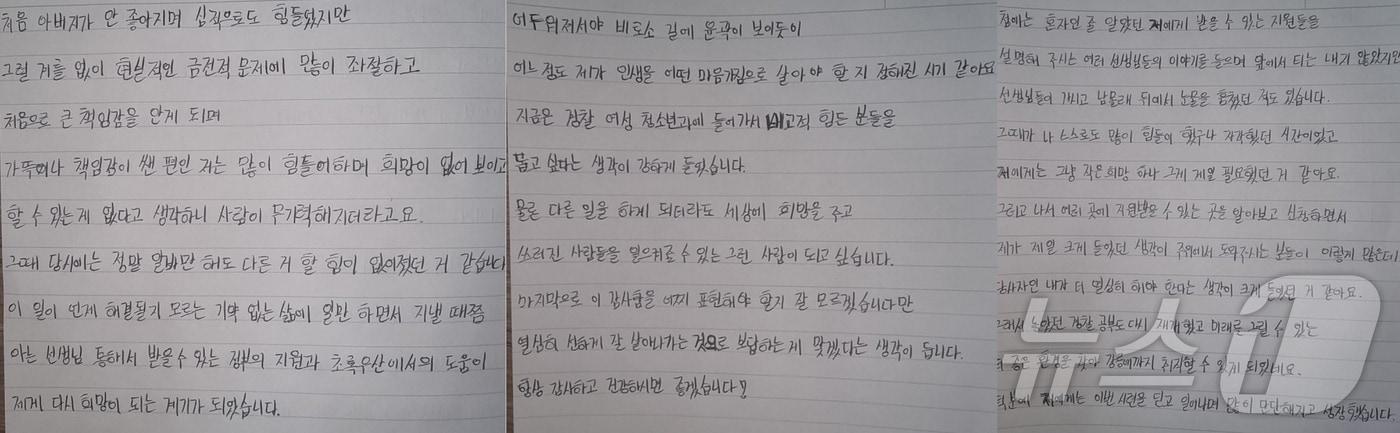 처음 아버지가 안 좋아지며 심적으로도 힘들었지만
그럴 겨를 없이 현실적인 금전적 문제에 많이 좌절하고
처음으로 큰 책임감을 안게 되며
가뜩이나 책임감이 쎈 편인 저는 많이 힘들어하며 희망이 없어 보이고
할 수 있는게 없다고 생각하니 사람이 무기력해지더라고요.
그때 당시에는 정말 알바만 해도 다른 거 할 힘이 없어졌던 거 같습니다
이 일이 언제 해결될지 모르는 기약 없는 삶에 일만 하면서 지낼 때쯤
아는 선생님 통해서 받을 수 있는 정부의 지원과 초록우산에서의 도움이
제게 다시 희망이 되는 계기가 되었습니다.
어두워져서야 비로소 길에 윤곽이 보이듯이
어느정도 제가 인생을 어떤 마음가짐으로 살아야 할 지 정해진 시기 같아요
지금은 경찰 여성 청소년과에 들어가서 배고적 힘든 분들을
돕고 싶다는 생각이 강하게 들었습니다.
물론 다른 일을 하게 되더라도 세상에 희망을 주고
쓰러진 사람들을 일으켜줄 수 있는 그런 사람이 되고 싶습니다.
마지막으로 이 감사함을 어찌 표현해야 할지 잘 모르겠습니다만
열심히 선하게 잘 살아나가는 것으로 보답하는게 맞겠다는 생각이 듭니다.
항상 감사하고 건강하시면 좋겠습니다!
첨에는 혼자인 줄 알았던 저에게 받을 수 있는 지원들을
설명해 주시는 여러 선생님들의 이야기를 들으며 앞에서 티는 내지 않았지만
선생님들이 가시고 남몰래 뒤에서 눈물을 훔쳤던 적도 있습니다.
그때가 나 스스로도 많이 힘들어 했구나 자각했던 시간이었고
저에게는 그냥 작은 희망 하나 그게 제일 필요했던 거 같아요.
그리고 나서 여러 곳에 지원받을 수 있는 곳을 알아보고 신청하면서
제가 제일 크게 들었던 생각이 주위에서 도와주시는 분들이 이렇게 많은데
당사자인 내가 더 열심히 해야 한다는 생각이 크게 들었던 거 같아요.
그래서 놓았던 경찰 공부도 다시 재개했고 미래를 그릴 수 있는
더 좋은 환경을 찾아 강릉에까지 취직할 수 있게 되었네요.
덕분에 저에게는 이번 시련을 딛고 일어나며 많이 단단해지고 성장했습니다.
뉴스1